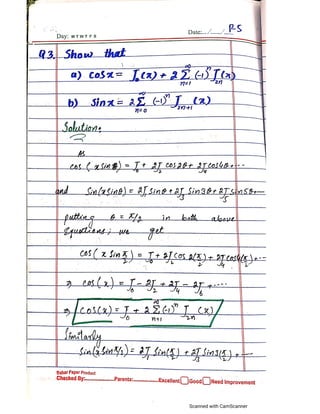 Day: M T W T F S Date: / / P-5
Q3. Show that
a) cos x = J₀(x) + 2 Σ_{n=1}^{∞} (-1)ⁿ J₂ₙ(x)
b) Sin x = 2 Σ_{n=0}^{∞} (-1)ⁿ J₂ₙ₊₁(x)
Solution:
As
cos (x sin θ) = J₀ + 2J₂ cos 2θ + 2J₄ cos 4θ + ...
and Sin(x sin θ) = 2J₁ Sin θ + 2J₃ Sin 3θ + 2J₅ Sin 5θ + ...
putting θ = π/2 in both above
equations; we get
cos(x Sin π/2) = J₀ + 2J₂ cos 2(π/2) + 2J₄ cos 4(π/2) + ...
⇒ cos(x) = J₀ - 2J₂ + 2J₄ - 2J₆ + ....
⇒ cos(x) = J₀ + 2 Σ_{n=1}^{∞} (-1)ⁿ J₂ₙ(x)
Similarly
Sin(x Sin π/2) = 2J₁ Sin(π/2) + 2J₃ Sin 3(π/2) + ...
Paper Product
Checked By: Parents: Excellent Good Need Improvement
Scanned with CamScanner